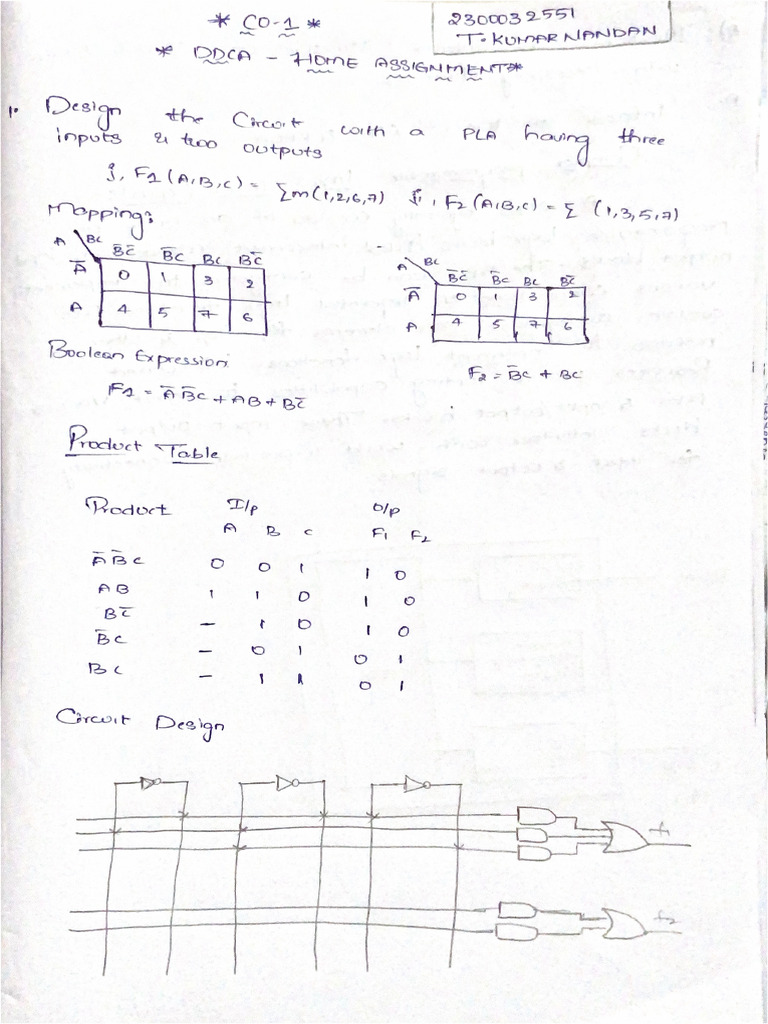 * CO-1 *
2300032551
T. KUMAR NANDAN
* DDCA - HOME ASSIGNMENT *
1. Design the Circuit with a PLA having three
inputs & two outputs
i, F1 (A,B,C) = Σm(1,2,6,7) ii, F2 (A,B,C) = Σ (1,3,5,7)
Mapping:
A BC B̅C̅ B̅C BC BC̅
A̅ 0 1 3 2
A 4 5 7 6
A BC B̅C̅ B̅C BC BC̅
A̅ 0 1 3 2
A 4 5 7 6
Boolean Expression:
F1 = A̅B̅C + AB + BC̅
F2 = B̅C + BC
Product Table
Product I/p O/p
A B C F1 F2
A̅B̅C 0 0 1 1 0
AB 1 1 0 1 0
BC̅ - 1 0 1 0
B̅C - 0 1 0 1
BC - 1 1 0 1
Circuit Design
f1
f2